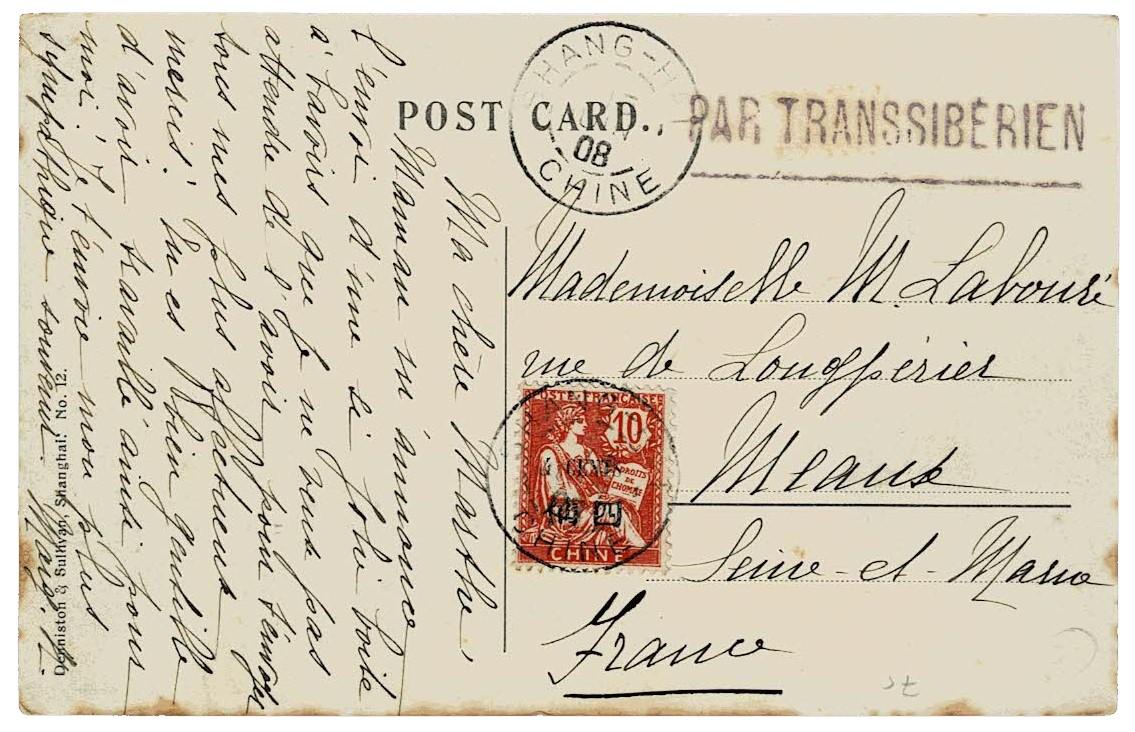 POST CARD.
SHANG-H
08
CHINE
PAR TRANSSIBÉRIEN
Ma chère Marthe,
Maman m'annonce
l'envoi d'une si jolie boîte
à bavoirs que je ne veux pas
attendre de l'avoir pour t'envoyer
tous mes plus affectueux
mercis! Tu es bien gentille
d'avoir travaillé ainsi pour
moi. Je t'envoie mon plus
sympathique souvenir.
Mademoiselle M. Labouré
rue de Longpérier
Meaux
Seine-et-Marne
France
POSTE FRANÇAISE
10
DROITS
DE
L'HOMME
4 CENTS
CHINE
CHINE
Denniston & Sullivan, Shanghai. No. 12.